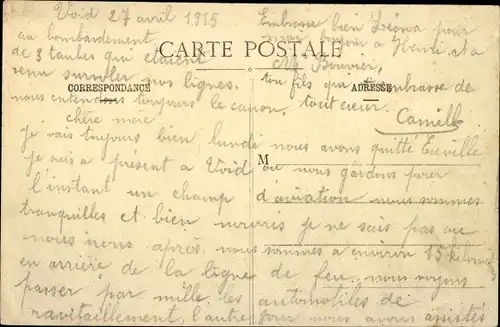 Void 27 avril 1915
CARTE POSTALE
CORRESPONDANCE
ADRESSE
M
chère mère
je vais toujours bien, lundi nous avons quitté
je suis a present a Void ou nous gardons pour
l'instant un champ d'aviation nous sommes
tranquilles et bien nourris je ne sais pas ou
nous irons après, nous sommes a environ 15 kilom
en arrière de la ligne de feu, nous voyons
passer par mille les automobiles de
ravitaillement, l'autre jour nous avons assistés
au bombardement
de 3 taubes qui étaient
venu survoler nos lignes.
nous entendons toujours le canon,
Embrasse bien Léona pour
moi Henri
Mr Bouvier,
ton fils qui t'embrasse de
tout cœur.
Camille